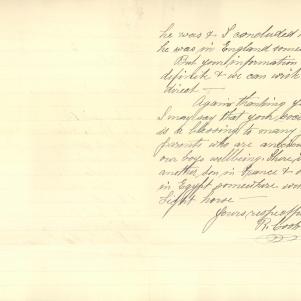 he was & I concluded
he was in England some
But your information
definite & we can write
direct —
Again thanking
I may say that your
is a blessing to many
parents who are
our boys wellbeing.
another son in France &
in Egypt somewhere
Light horse —
Yours respect
R. Cook